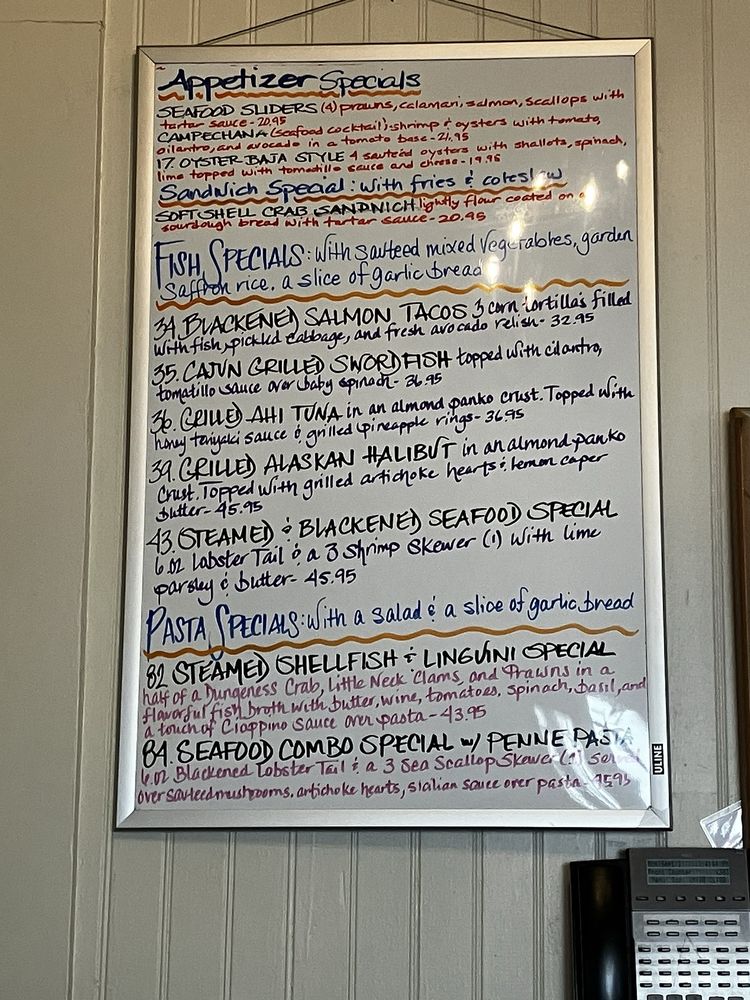 Appetizer Specials
SEAFOOD SLIDERS (4) prawns, calamari, salmon, scallops with
tartar sauce - 20.95
CAMPECHANA (seafood cocktail): shrimp & oysters with tomato,
cilantro, and avocado in a tomato base - 21.95
17. OYSTER BAJA STYLE 4 sautéed oysters with shallots, spinach,
lime topped with tomatillo sauce and cheese - 19.95
Sandwich Special: with fries & coleslaw
SOFT SHELL CRAB SANDWICH lightly flour coated on a
sourdough bread with tartar sauce - 20.95
FISH SPECIALS: with sauteed mixed vegetables, garden
saffron rice, a slice of garlic bread
34. BLACKENED SALMON TACOS 3 corn tortillas filled
with fish, pickled cabbage, and fresh avocado relish - 32.95
35. CAJUN GRILLED SWORDFISH topped with cilantro,
tomatillo sauce over baby spinach - 36.95
36. GRILLED AHI TUNA in an almond panko crust. Topped with
honey teriyaki sauce & grilled pineapple rings - 36.95
39. GRILLED ALASKAN HALIBUT in an almond panko
crust. Topped with grilled artichoke hearts & lemon caper
butter - 45.95
43. STEAMED & BLACKENED SEAFOOD SPECIAL
6 oz Lobster Tail & a 3 Shrimp Skewer (1) with lime
parsley & butter - 45.95
PASTA SPECIALS: with a salad & a slice of garlic bread
82 STEAMED SHELLFISH & LINGUINI SPECIAL
half of a Dungeness Crab, Little Neck Clams, and Prawns in a
flavorful fish broth with butter, wine, tomatoes, spinach, basil, and
a touch of Cioppino sauce over pasta - 43.95
84. SEAFOOD COMBO SPECIAL w/ PENNE PASTA
6 oz Blackened Lobster Tail & a 3 Sea Scallop Skewer (1)
over sauteed mushrooms, artichoke hearts, Italian sauce over pasta - 45.95
ULINE